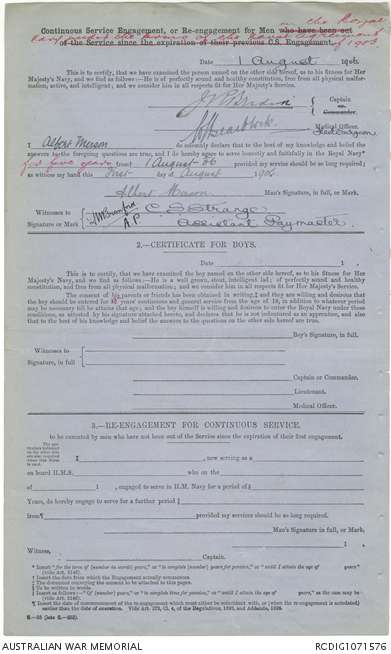 in the Royal
Continuous Service Engagement, or Re-engagement for Men who have been out
Navy under the terms of the Naval Agreement
of the Service since the expiration of their previous C.S. Engagement.
of 1903
Date 1 August 1906
This is to certify, that we have examined the person named on the other side hereof, as to his fitness for Her
Majesty's Navy, and we find as follows:—He is of perfectly sound and healthy constitution, free from all physical
malformation, active, and intelligent; and we consider him in all respects fit for Her Majesty's Service.
Captain
or
Commander.
Medical Officer.
Fleet Surgeon
I Albert Merson do solemnly declare that to the best of my knowledge and belief the
answers to the foregoing questions are true, and I do hereby agree to serve honestly and faithfully in the Royal Navy*
for five years from† 1 August 06 provided my service should be so long required;
as witness my hand this First day of August 1906
Albert Merson Man's Signature, in full, or Mark.
Witnesses to
Signature or Mark
A P
C S Strange
Assistant Paymaster
2.—CERTIFICATE FOR BOYS.
Date 1 .
This is to certify, that we have examined the boy named on the other side hereof, as to his fitness for Her
Majesty's Navy, and we find as follows:—He is a well grown, stout, intelligent lad; of perfectly sound and healthy
constitution, and free from all physical malformation; and we consider him in all respects fit for Her Majesty's Service.
The consent of his parents or friends has been obtained in writing,‡ and they are willing and desirous that
the boy should be entered for years' continuous and general service from the age of 18, in addition to whatever period
may be necessary till he attains that age; and the boy himself is willing and desirous to enter the Royal Navy under these
conditions, as attested by his signature attached hereto, and declares that he is not indentured as an apprentice, and also
that to the best of his knowledge and belief the answers to the questions on the other side hereof are true.
Boy's Signature, in full.
Witnesses to
Signature, in full
Captain or Commander.
Lieutenant.
Medical Officer.
3.—RE-ENGAGEMENT FOR CONTINUOUS SERVICE.
to be executed by men who have not been out of the Service since the expiration of their first engagement.
I , now serving as a
on board H.M.S. who on the
of 1 , engaged to serve in H.M. Navy for a period of§
Years, do hereby engage to serve for a further period||
from¶ provided my services should be so long required.
Man's Signature in full, or Mark,
1 .
Witness,
Captain.
* Insert "for the term of (number in words) years," or "to complete (number) years for pension," or "until I attain the age of years"
† Insert the date from which the Engagement actually commences.
‡ The document conveying the consent to be attached to this paper.
§ To be written in words.
|| Insert as follows:—"Of (number) years," or "to complete (number) years for pension," or "until I attain the age of years," as the case may be.
¶ Insert the date of commencement of the re-engagement
AUSTRALIAN WAR MEMORIAL
RCDIG1071576